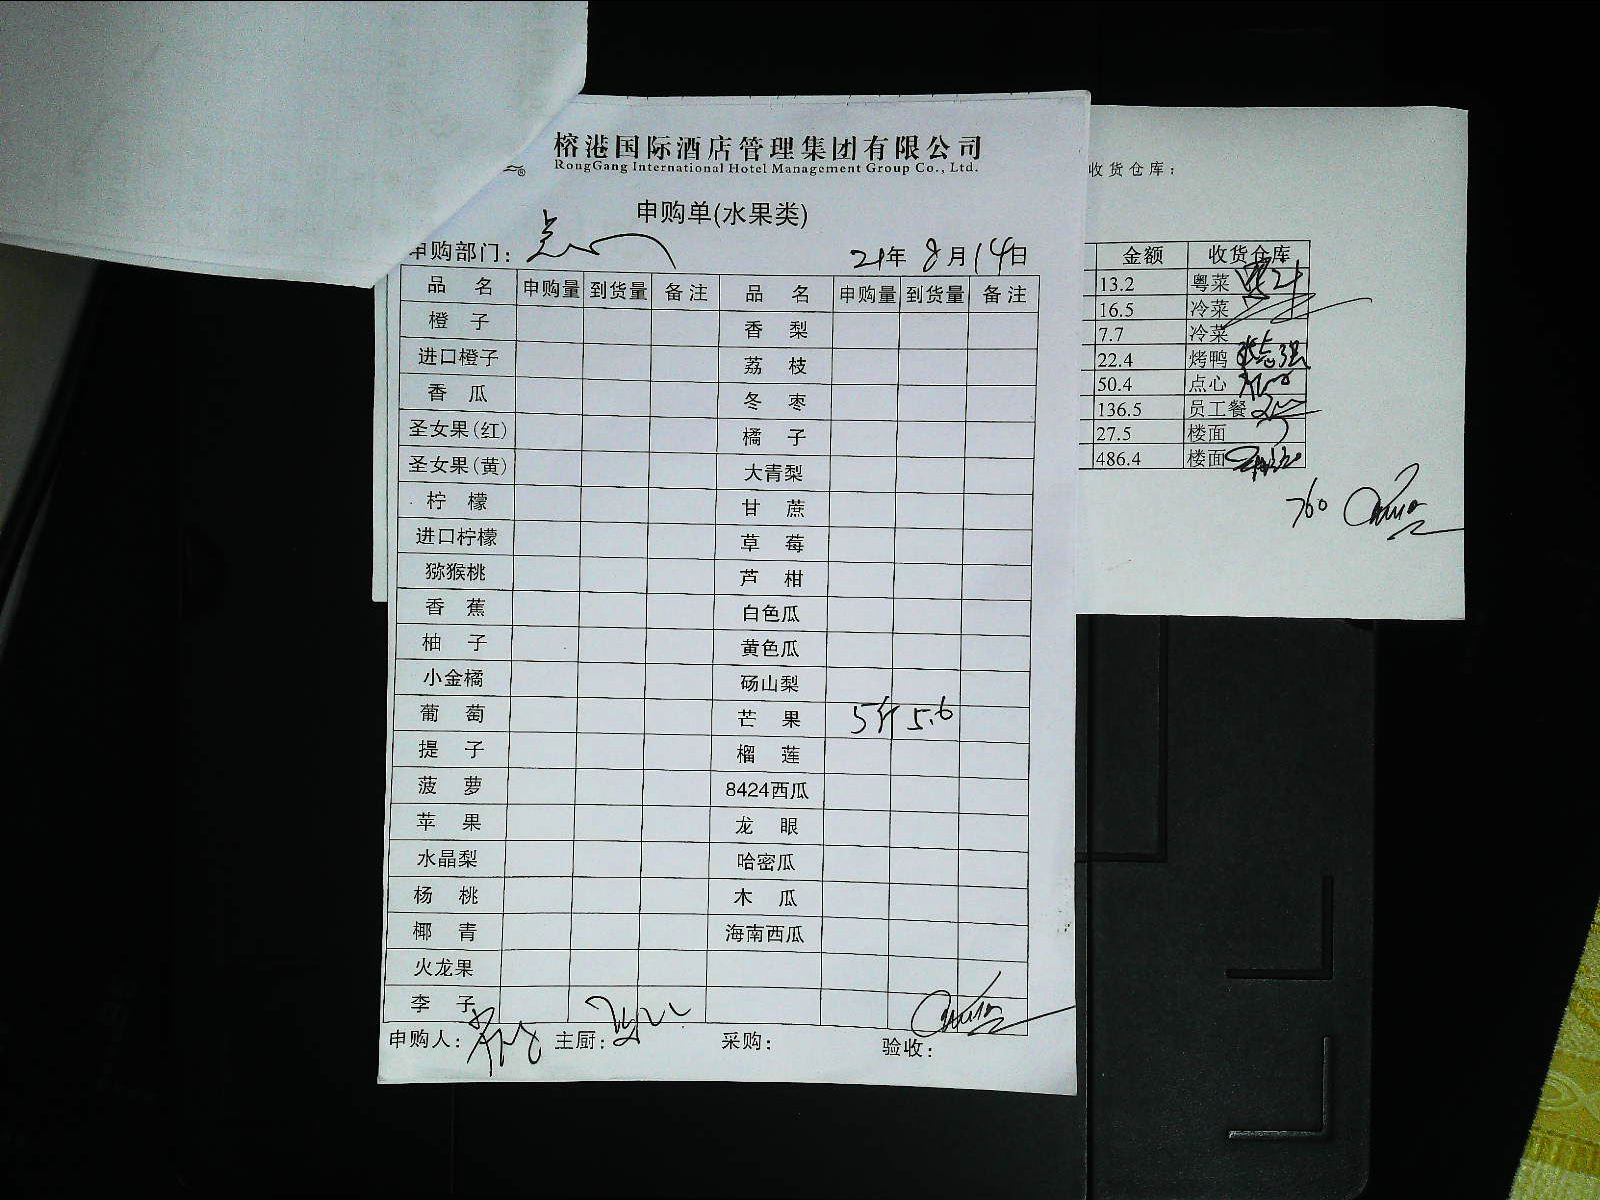 榕港国际酒店管理集团有限公司
RongGang International Hotel Management Group Co., Ltd.
申购单(水果类)
申购部门: 点心 21年 8月14日
品名 申购量 到货量 备注 品名 申购量 到货量 备注
橙子 香梨
进口橙子 荔枝
香瓜 冬枣
圣女果(红) 橘子
圣女果(黄) 大青梨
柠檬 甘蔗
进口柠檬 草莓
猕猴桃 芦柑
香蕉 白色瓜
柚子 黄色瓜
小金橘 砀山梨
葡萄 芒果 5斤 5.6
提子 榴莲
菠萝 8424西瓜
苹果 龙眼
水晶梨 哈密瓜
杨桃 木瓜
椰青 海南西瓜
火龙果
李子
申购人: 主厨: 采购: 验收:
收货仓库:
金额 收货仓库
13.2 粤菜
16.5 冷菜
7.7 冷菜
22.4 烤鸭
50.4 点心
136.5 员工餐
27.5 楼面
486.4 楼面
760